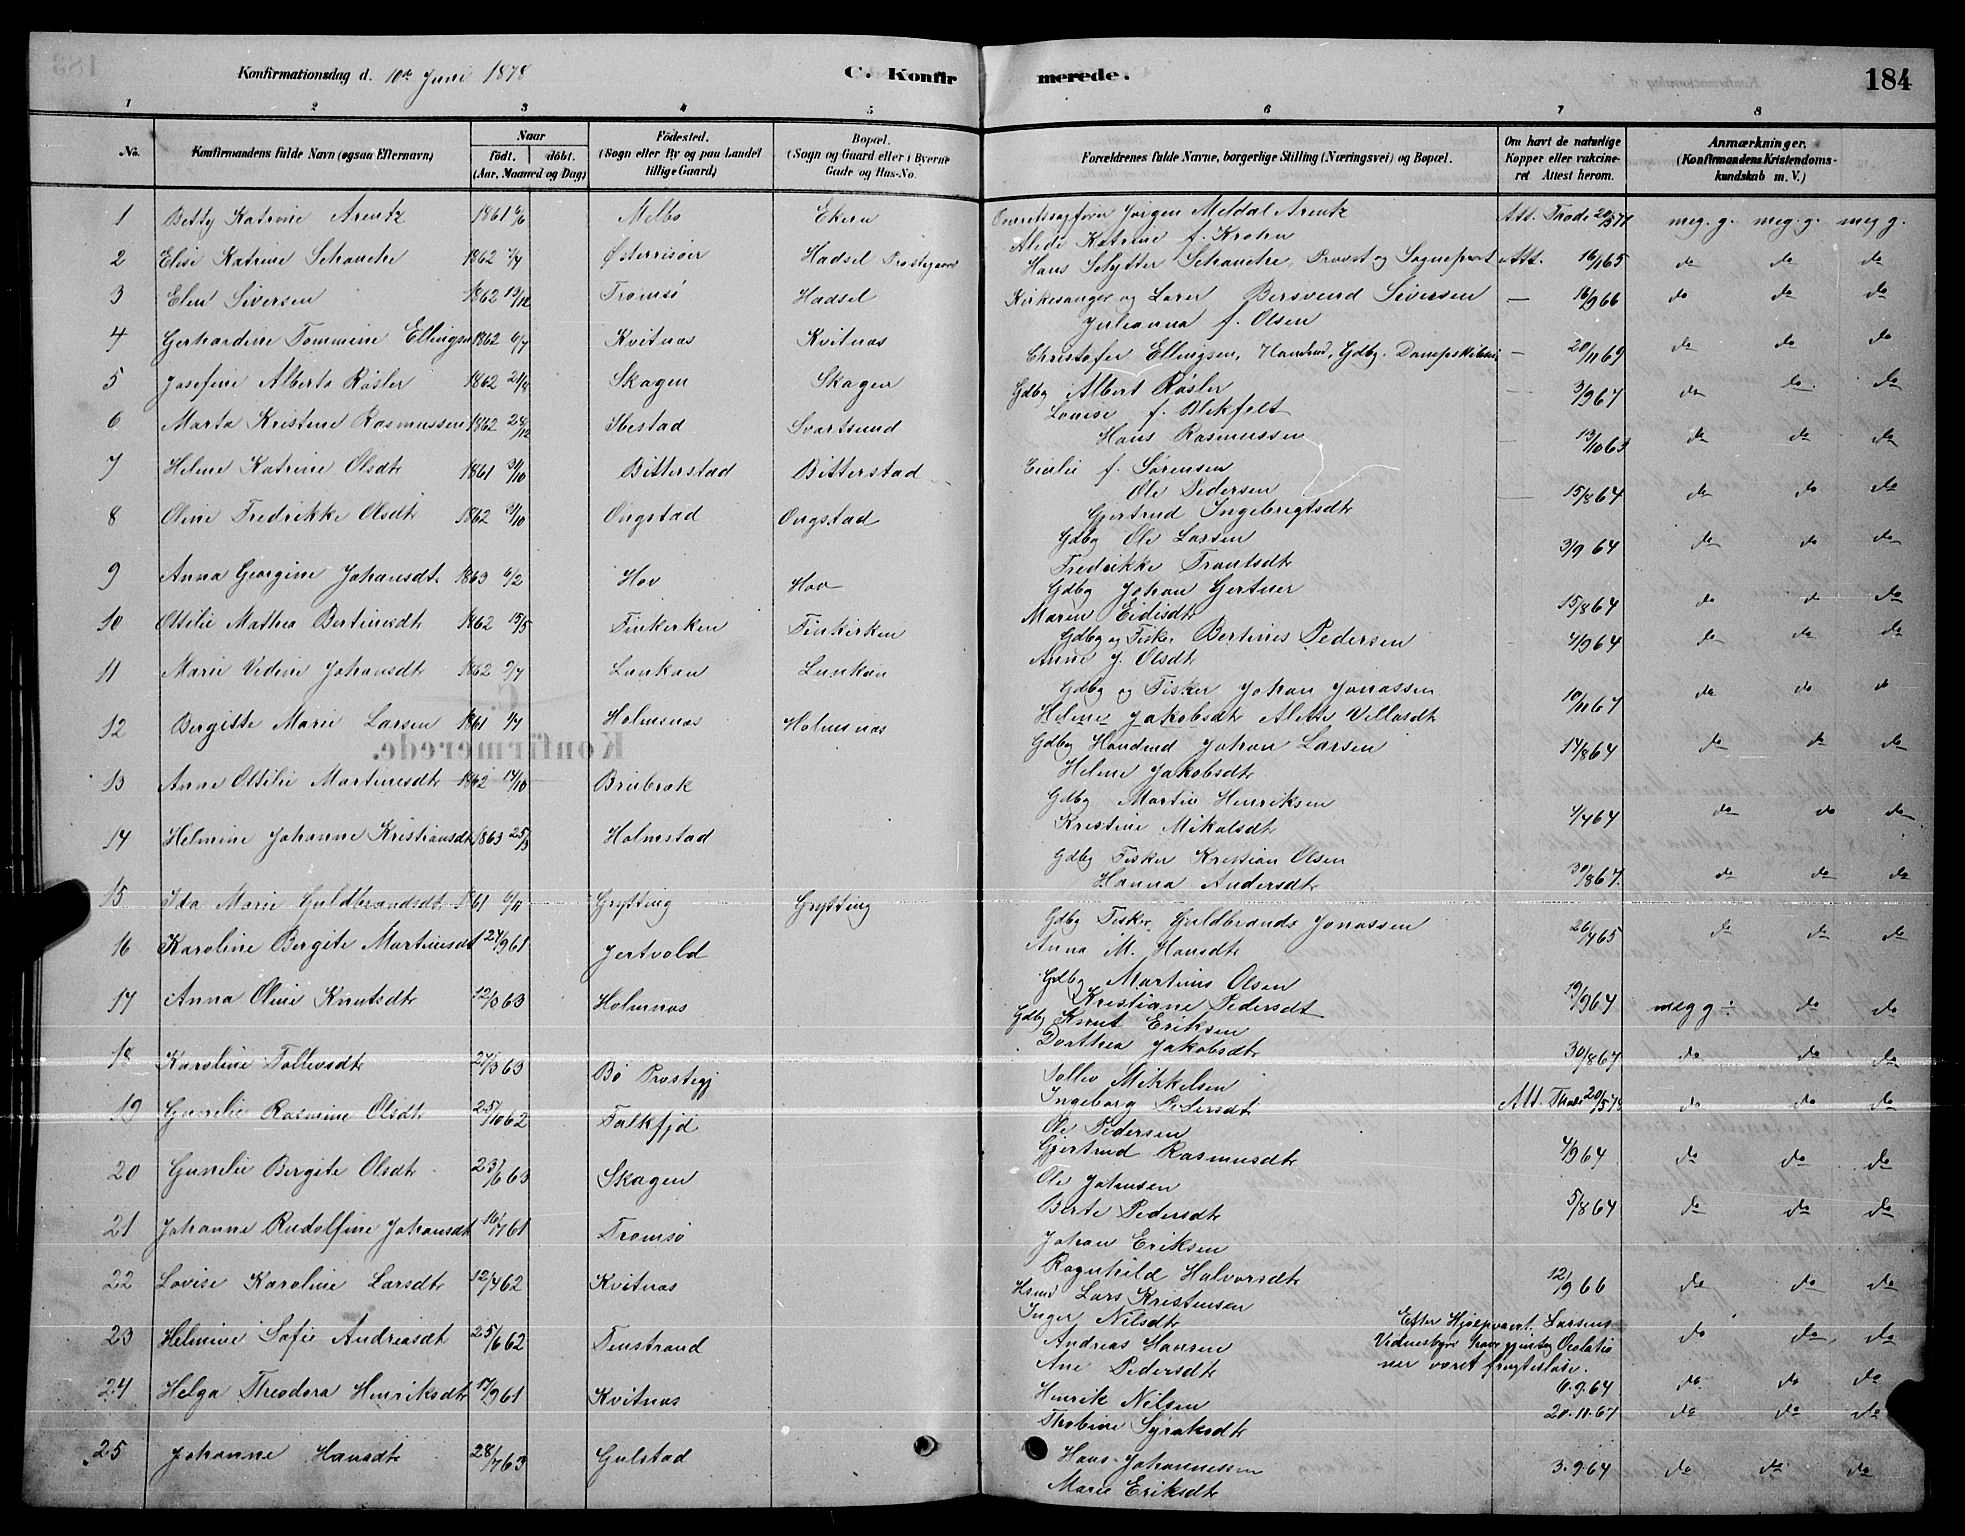 Konfirmationsdag d. 10de Juni 1878
C. Konfirmerede.
184
1 2 3 4 5 6 7 8
No.
Konfirmandens fulde Navn (ogsaa Efternavn)
Naar
födt. döbt.
(Aar, Maaned og Dag)
Födested.
(Sogn eller By og paa Landet
tillige Gaard)
Bopæl.
(Sogn og Gaard eller i Byerne
Gade og Hus-No.
Forældrenes fulde Navne, borgerlige Stilling (Næringsvei) og Bopæl.
Om havt de naturlige
Kopper eller vakcine-
ret Attest herom.
Anmærkninger.
(Konfirmandens Kristendoms-
kundskab m. V.)
1 Betty Katrine Arentz 1861 6/6 Melbo Ekern Jørgen Meldal Arentz Att. Thode 20/5 78 meg. g. meg. g. meg g.
Katrine f. Krohn
2 Elise Katrine Schanche 1862 Østerrisöer Hadsel Prostegaard Hans Schanche, Provst og Sognepræst Att. 16/1 65 do do do
3 Elen Siversen 1862 13/12 Tromsö Hadsel Kirkesanger og Lærer Bersvend Siversen — 16/9 66 do do do
Julianna f. Olsen
4 Gerhardine Tommine Ellingsen 1862 6/7 Kvitnæs Kvitnæs Christofer Ellingsen, Handsmd, Gdbg. — 20/11 69 do do do
5 Josefine Alberta Røsler 1862 Skagen Skagen Gdbg Albert Røsler — 3/9 64 do do do
Louise f. Blikfelt
6 Marta Kristine Rasmussen 1862 24/12 Ibestad Svartsund Hans Rasmussen — 13/10 63 do do do
f. Sørensen
7 Helene Katrine Olsdtr 1861 31/10 Bitterstad Bitterstad Ole Pedersen — 15/8 64 do do do
Gjertrud Ingebrigtsdtr
8 Oline Fredrikke Olsdtr 1862 31/10 Ongstad Ongstad Gdbg Ole Larsen 3/9 64 do do do
Fredrikke Trontsdtr
9 Anna Georgine Johansdt. 1863 6/2 Hov Hov Gdbg Johan Gertner 15/8 64 do do do
Maren Eidisdtr
10 Ottilie Mathea Bertinusdt 1862 15/5 Finkirken Finkirken Gdbg og Fisker Bertinus Pedersen 4/9 64 do do do
Anne J. Olsdtr
11 Marie Vedine Johansdtr 1862 9/7 Lunkan Lunkan Gdbg og Fisker Johan Jonassen 10/11 67 do do do
Helene Jakobsdtr Alette Villasdtr
12 Bergitte Marie Larsen 1861 4/7 Holmsnæs Holmsnæs Gdbg Handsmd Johan Larsen 14/8 64 do do do
Helene Jakobsdtr
13 Anne Ottilie Martinusdtr 1862 14/10 Gdbg Henriksen 4/4 64 do do do
Kristine Mikalsdtr
14 Helmine Johanne Kristiansdtr 1863 Holmstad Gdbg Fisker Kristian Olsen 30/8 67 do do do
Hanna Andersdtr
15 Ida Marie Guldbrandsdt 1861 6/11 Grytting Grytting Gdbg Fisker Guldbrands Jonassen 26/4 65 do do do
Anna M. Hansdtr
16 Karoline Bergite Martinusdt 24/9 61 Jertvold Gdbg Martinus Olsen 19/9 64 meg g ÷ do do
Kristiane Pedersdt
17 Anna Oline Knutsdtr 12/3 63 Holmnæs Gdbg Knut Eriksen 30/8 67 do do do
Dorthea Jakobsdtr
18 Karoline Tollevsdtr 27/3 63 Bö Prostegj Tollev Mikkelsen Att. Thode 20/5 78 do do do
Ingeborg Pedersdt
19 Gunelie Rasmine Olsdtr 25/10 62 Falkfjd Ole Pedersen 4/9 64 do do do
Gjertrud Rasmusdtr
20 Gunelie Bergite Olsdt 23/6 63 Skagen Ole Johnsen 5/8 64 do do do
Berte Pedersdtr
21 Johanne Rudolfine Johansdt 16/7 61 Tromsö Johan Eriksen 12/9 66 do do do
Ragnhild Halvorsdtr
22 Lovise Karoline Larsdtr 12/4 62 Kvitnæs Hsmd Lars Kristensen Efter Hjælpvacct. Larsens do do do
Inger Nilsdtr
ner været frugtesløse.
23 Helmine Sofie Andreasdtr 25/6 62 Finstrand Andreas Hansen 6.9.64 do do do
Ane Pedersdtr
24 Helga Theodora Henriksdtr 17/9 61 Kvitnæs Henrik Nilsen 20.11.67 do do do
Thobine Syraksdtr
25 Johanne Hansdtr 28/7 63 Gulstad Hans Johannessen 3.9.64 do do do
Maria Eriksdtr
C.
Konfirmerede.